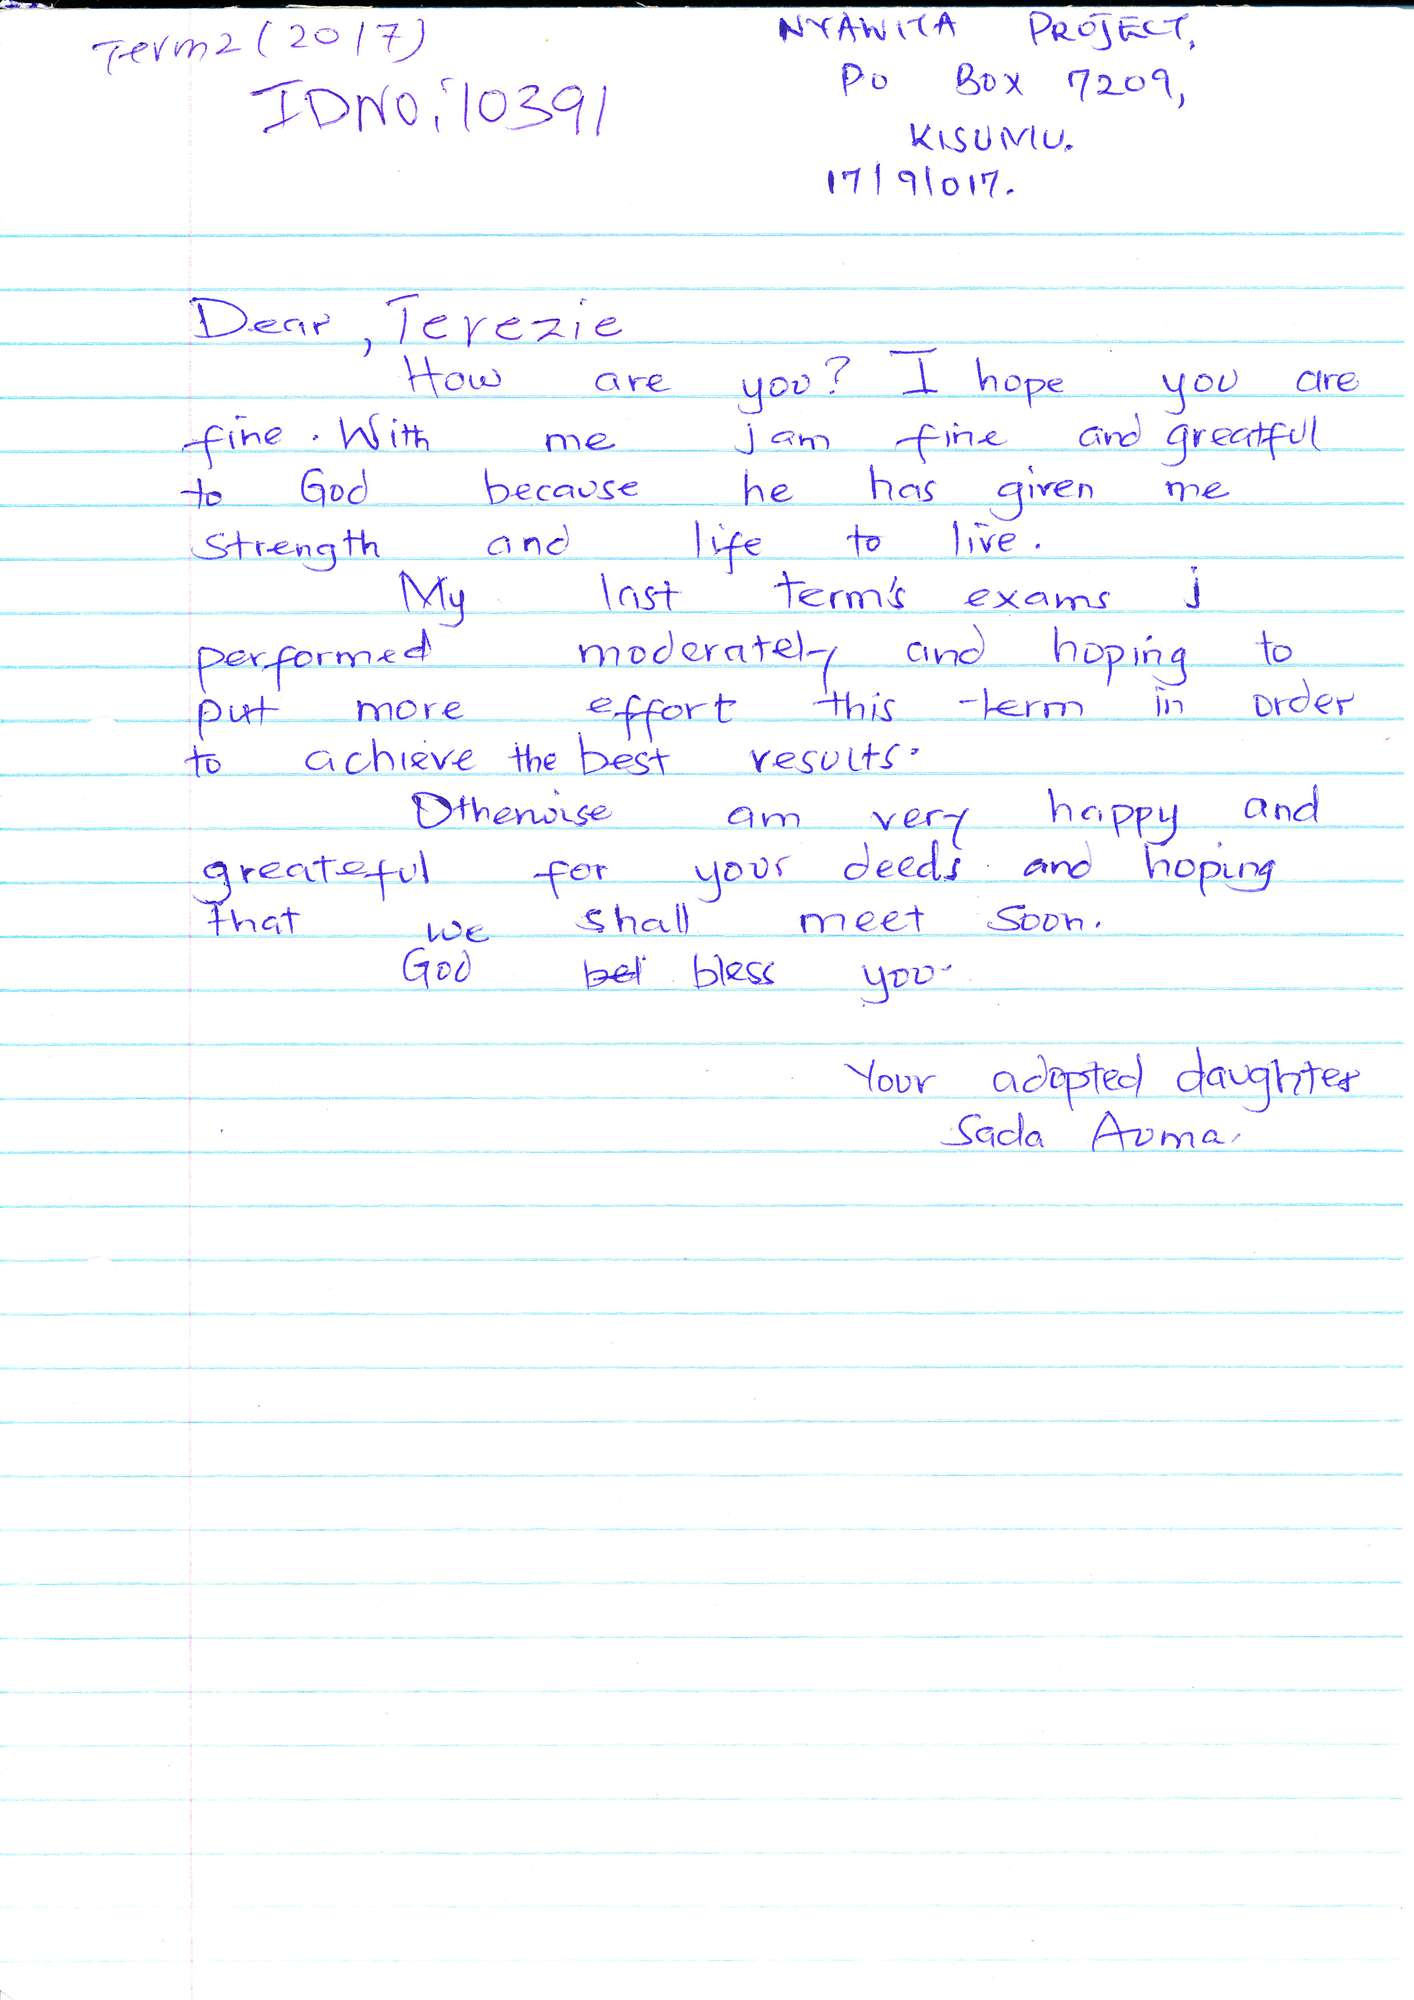 Term2 (2017)
IDNO: 10391
NYAWITA PROJECT,
Po Box 7209,
KISUMU.
17/9/017.
Dear, Terezie
How are you? I hope you are
fine. With me jam fine and greatful
to God because he has given me
strength and life to live.
My last term's exams j
performed moderately and hoping to
put more effort this term in order
to achieve the best results.
Otherwise am very happy and
greateful for your deeds and hoping
that we shall meet soon.
God bless you.
Your adopted daughter
Sada Auma.